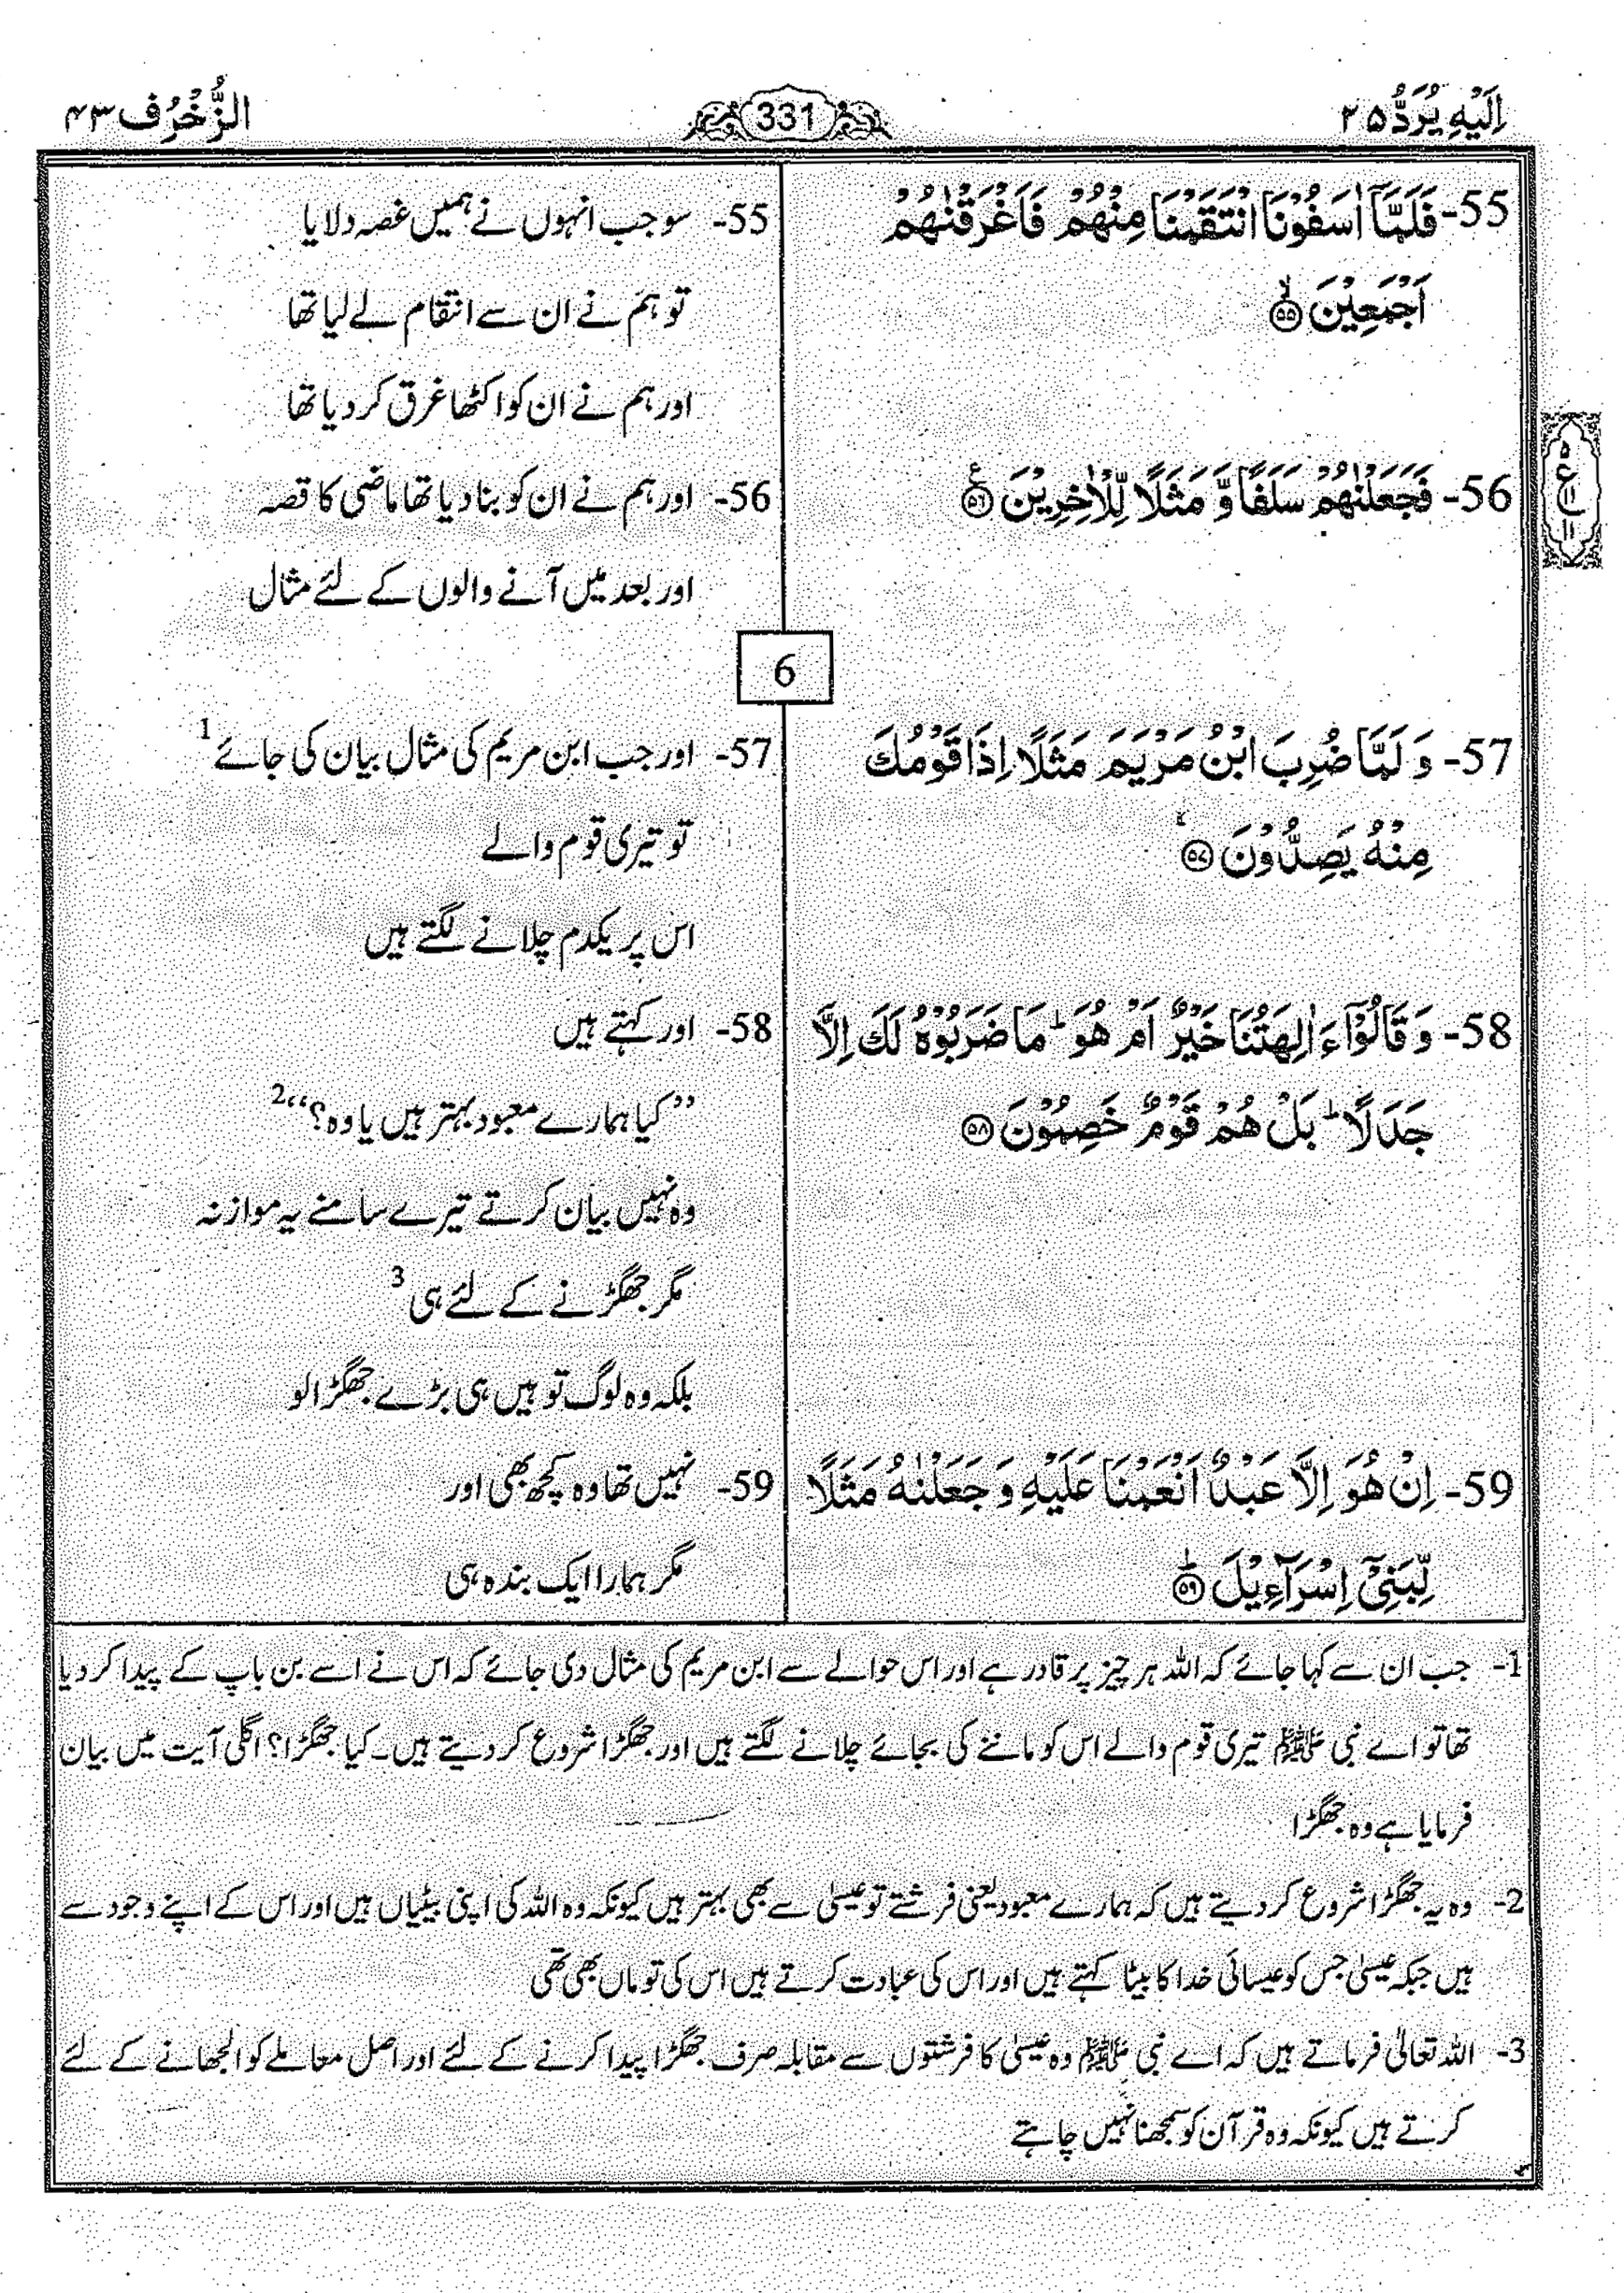 اِلَيْهِ يُرَدُّ ۲۵
331
الزُّخْرُف ۴۳
55- فَلَمَّاۤ اٰسَفُوْنَا انْتَقَمْنَا مِنْهُمْ فَاَغْرَقْنٰهُمْ
اَجْمَعِيْنَ ۙ‏﴿۵۵﴾
56- فَجَعَلْنٰهُمْ سَلَفًا وَّ مَثَلًا لِّلْاٰخِرِيْنَ ﴿۵۶﴾ ع
۵
ع
۱۱
۱۱
57- وَ لَمَّا ضُرِبَ ابْنُ مَرْيَمَ مَثَلًا اِذَا قَوْمُكَ
مِنْهُ يَصِدُّوْنَ ﴿۵۷﴾
58- وَ قَالُوْۤا ءَاٰلِهَتُنَا خَيْرٌ اَمْ هُوَ ؕ مَا ضَرَبُوْهُ لَكَ اِلَّا
جَدَلًا ؕ بَلْ هُمْ قَوْمٌ خَصِمُوْنَ ﴿۵۸﴾
59- اِنْ هُوَ اِلَّا عَبْدٌ اَنْعَمْنَا عَلَيْهِ وَ جَعَلْنٰهُ مَثَلًا
لِّبَنِيْۤ اِسْرَآءِيْلَ ؕ﴿۵۹﴾
55- سو جب انہوں نے ہمیں غصہ دلایا
تو ہم نے ان سے انتقام لے لیا تھا
اور ہم نے ان کو اکٹھا غرق کر دیا تھا
56- اور ہم نے ان کو بنا دیا تھا ماضی کا قصہ
اور بعد میں آنے والوں کے لئے مثال
6
57- اور جب ابن مریم کی مثال بیان کی جائے 1
تو تیری قوم والے
اس پر یکدم چلانے لگتے ہیں
58- اور کہتے ہیں
”کیا ہمارے معبود بہتر ہیں یا وہ؟“ 2
وہ نہیں بیان کرتے تیرے سامنے یہ موازنہ
مگر جھگڑنے کے لئے ہی 3
بلکہ وہ لوگ تو ہیں ہی بڑے جھگڑالو
59- نہیں تھا وہ کچھ بھی اور
مگر ہمارا ایک بندہ ہی
1- جب ان سے کہا جائے کہ اللہ ہر چیز پر قادر ہے اور اس حوالے سے ابن مریم کی مثال دی جائے کہ اس نے اسے بن باپ کے پیدا کر دیا
تھا تو اے نبی ﷺ تیری قوم والے اس کو ماننے کی بجائے چلانے لگتے ہیں اور جھگڑا شروع کر دیتے ہیں۔ کیا جھگڑا؟ اگلی آیت میں بیان
فرمایا ہے وہ جھگڑا
2- وہ یہ جھگڑا شروع کر دیتے ہیں کہ ہمارے معبود یعنی فرشتے تو عیسیٰ سے بھی بہتر ہیں کیونکہ وہ اللہ کی اپنی بیٹیاں ہیں اور اس کے اپنے وجود سے
ہیں جبکہ عیسیٰ جس کو عیسائی خدا کا بیٹا کہتے ہیں اور اس کی عبادت کرتے ہیں اس کی تو ماں بھی تھی
3- اللہ تعالیٰ فرماتے ہیں کہ اے نبی ﷺ وہ عیسیٰ کا فرشتوں سے مقابلہ صرف جھگڑا پیدا کرنے کے لئے اور اصل معاملے کو الجھانے کے لئے
کرتے ہیں کیونکہ وہ قرآن کو سمجھنا نہیں چاہتے